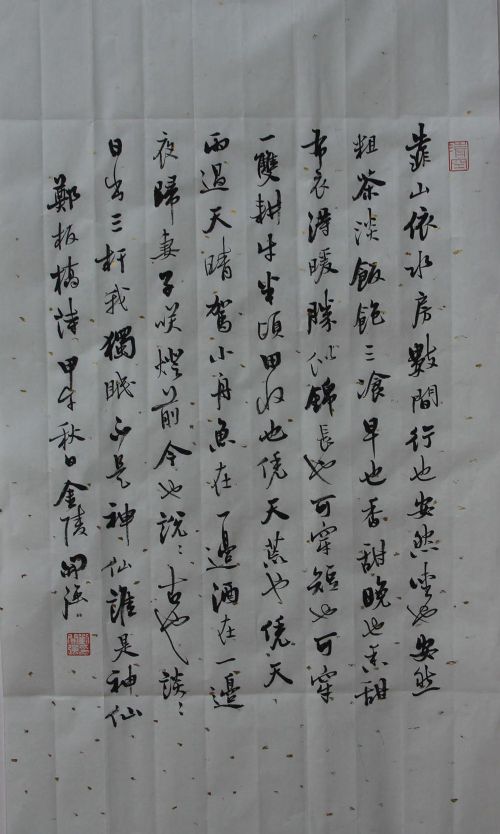 靠山依水房數間行也安然坐也安然
粗茶淡飯飽三飡早也香甜晚也香甜
布衣得暖勝似錦長也可穿短也可穿
一雙耕牛半頃田收也僥天荒也僥天
雨過天晴駕小舟魚在一邊酒在一邊
夜歸妻子咲燈前今也說〻古也談〻
日出三杆我獨眠不是神仙誰是神仙
鄭板橋詩甲午秋日金陵